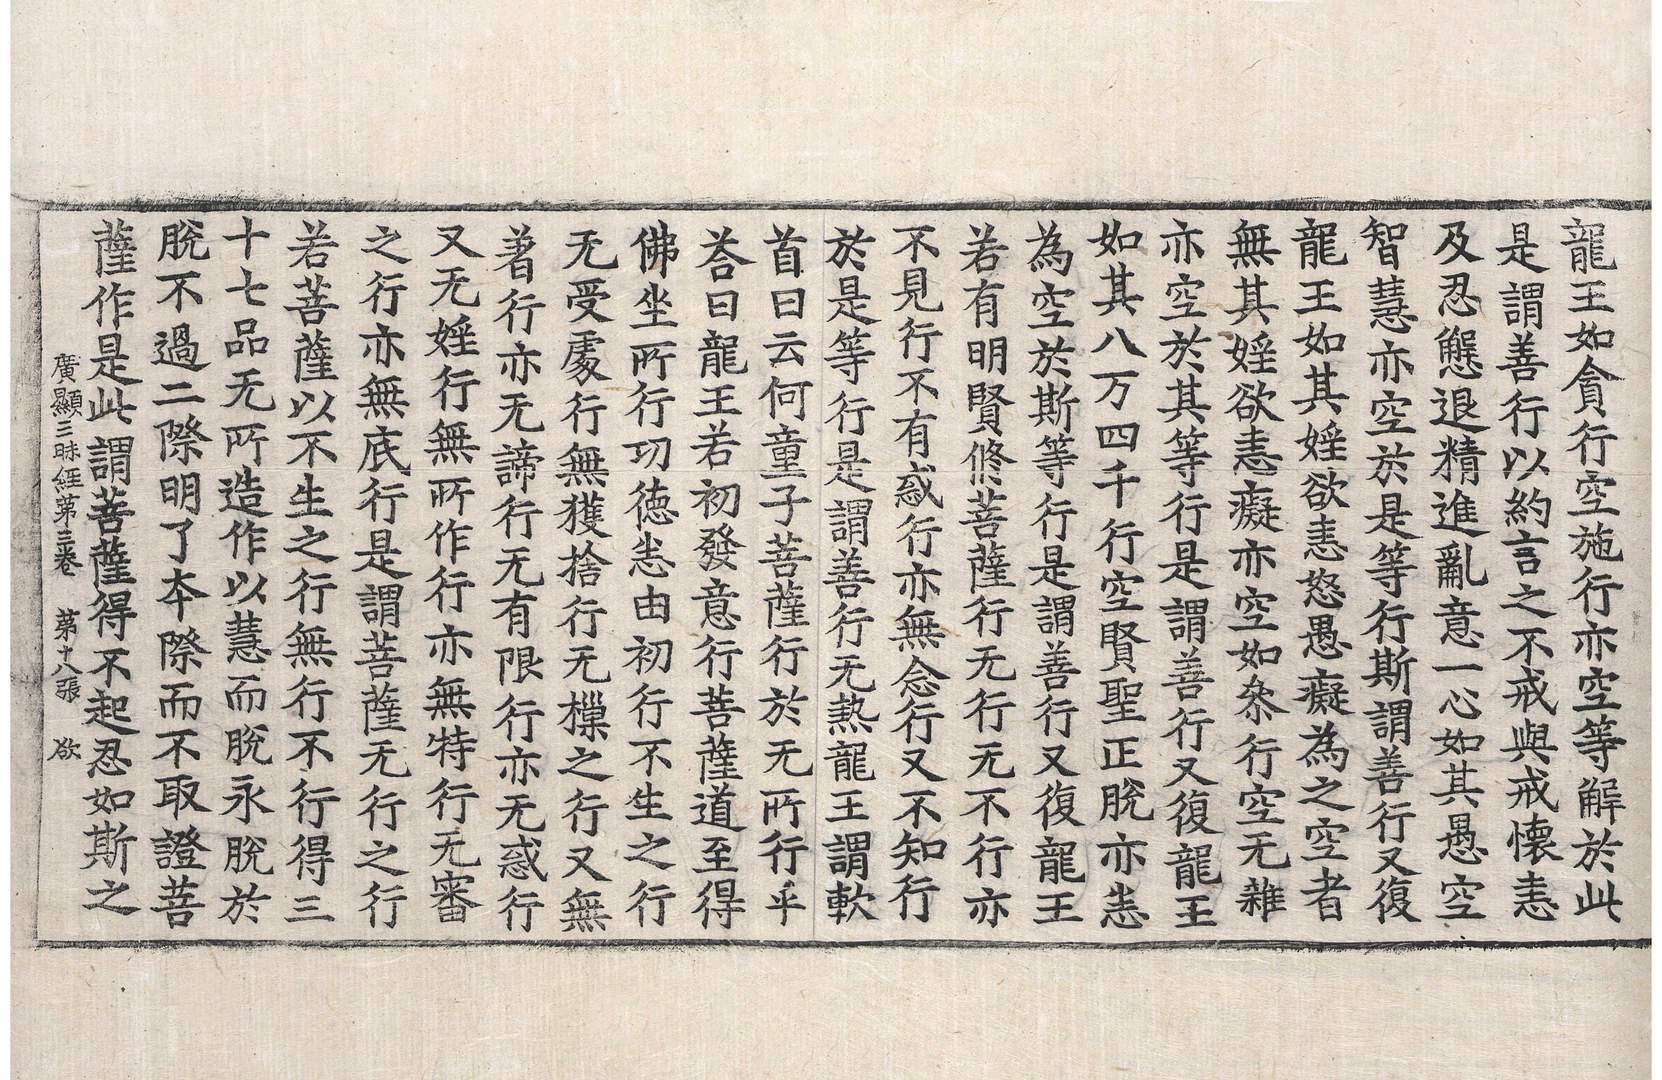 龍王如貪行空施行亦空等解於此
是謂善行以約言之不戒與戒懷恚
及忍懈怠退精進亂意一心如其愚空
智慧亦空於是等行斯謂善行又復
龍王如其婬欲恚怒愚癡為之空者
無其婬欲恚癡亦空如叅行空无雜
亦空於其等行是謂善行又復龍王
如其八万四千行空賢聖正脫亦恚
為空於斯等行是謂善行又復龍王
若有明賢脩菩薩行无行无不行亦
不見行不有惑行亦無念行又不知行
於是等行是謂善行无熱龍王謂軟
首曰云何童子菩薩行於无所行乎
荅曰龍王若初發意行菩薩道至得
佛坐所行功徳恚由初行不生之行
无受處行無獲捨行无樔之行又無
著行亦无諦行无有限行亦无惑行
又无婬行無所作行亦無特行无審
之行亦無底行是謂菩薩无行之行
若菩薩以不生之行無行不行得三
十七品无所造作以慧而脫永脫於
脫不過二際明了本際而不取證菩
薩作是此謂菩薩得不起忍如斯之
廣顯三昧經第三卷 第十八張 欲